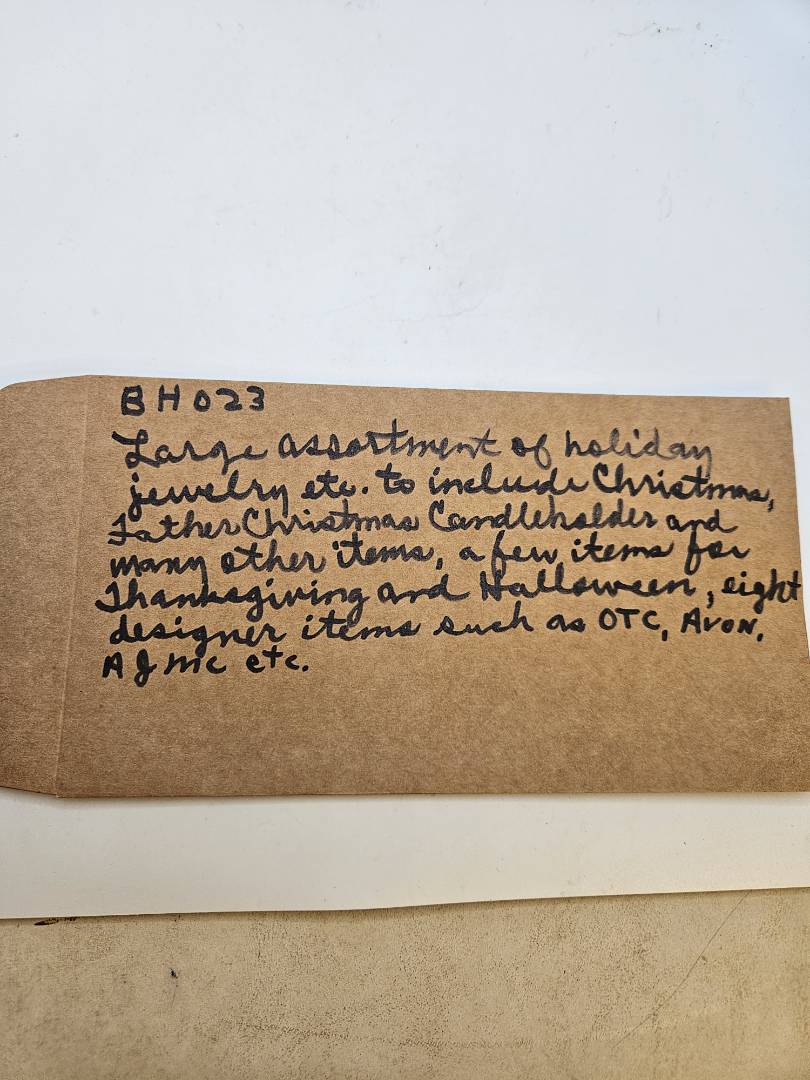 BH023
Large assortment of holiday
jewelry etc. to include Christmas,
Father Christmas Candleholder and
many other items, a few items for
Thanksgiving and Halloween, eight
designer items such as OTC, Avon,
AJMC etc.